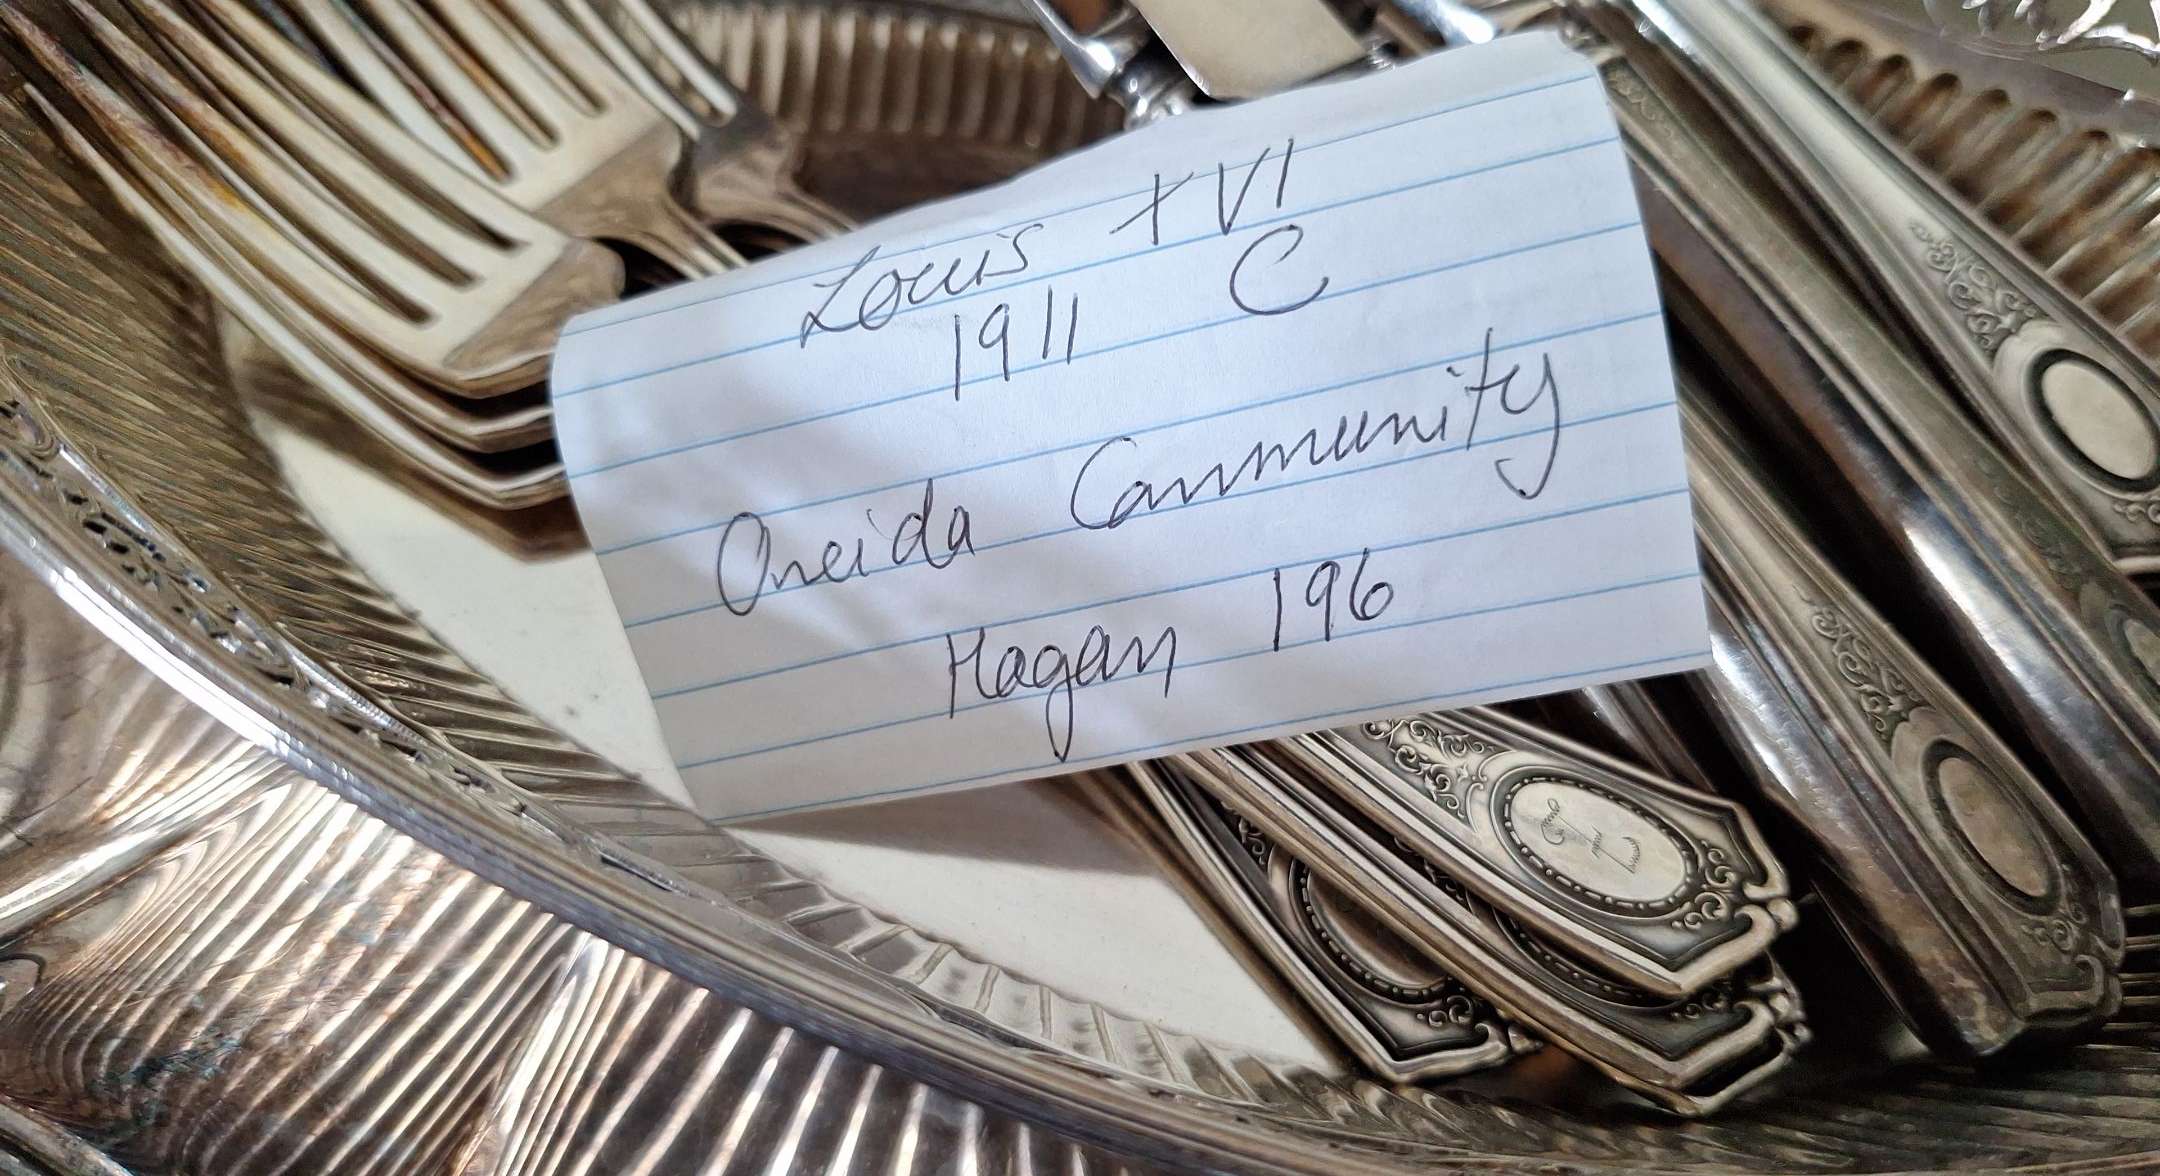 Louis XVI
1911 C
Oneida Community
Hagan 196